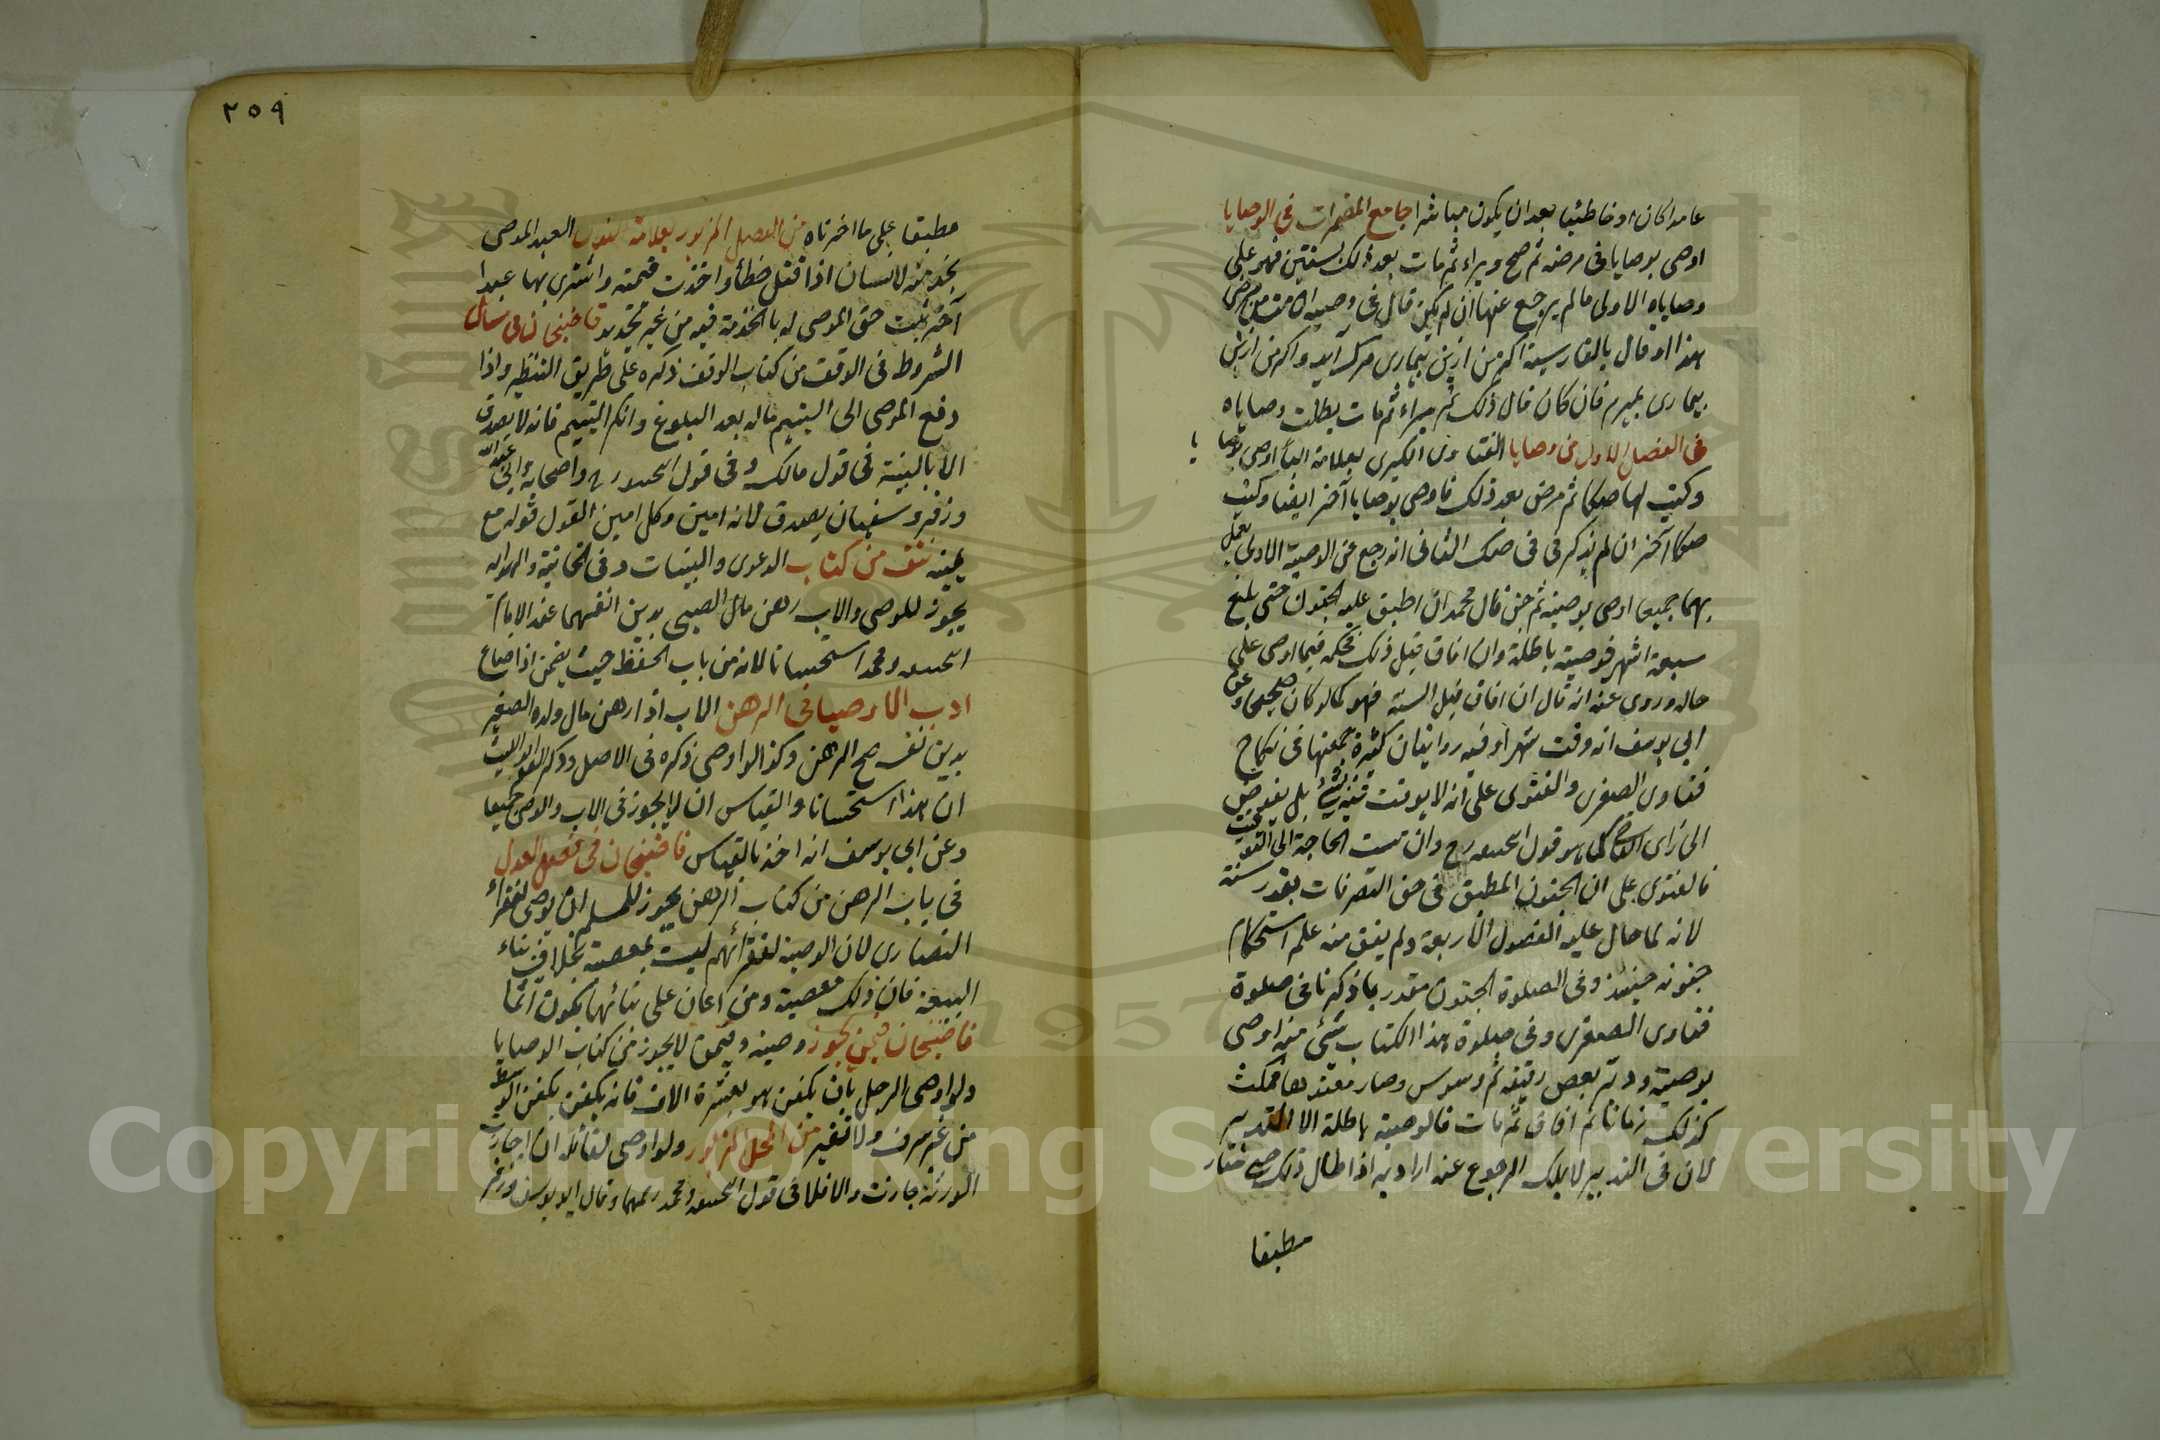 عامدا كان او خاطئا بعد ان يكون مباشرا جامع المضمرات في الوصايا
اوصى بوصايا في مرضه ثم صح وبراء ثم مات بعد ذلك بسنتين فهو على
وصاياه الاولى ما لم يرجع عنها ان لم يكن قال في وصيته ان مت من مرضي
هذا او قال بالفارسية اكر من ازين بيمارى مرك آيد واكر من ازين
بيمارى بميرم فان كان قال ذلك ثم براء ثم مات بطلت وصاياه
في الفصل الاول من وصايا الفتاوى الكبرى بعلامة البأ اوصى بوصايا
وكتب لها صكا ثم مرض بعد ذلك فاوصى بوصايا آخر ايضا وكتب
صكا آخر ان لم يذكر في في صك الثاني انه رجع عن الوصية الاولى يعمل
بهما جميعا اوصى بوصية ثم جن قال محمد ان اطبق عليه الجنون حتى بلغ
سبعة اشهر فوصيته باطلة وان افاق قبل ذلك فحكمه فيما اوصى على
حاله وروى عنه انه قال ان افاق قبل السنة فهو كما لو كان صحيحا وعن
ابي يوسف انه وقت شهرا وفيه روايتان كثيرة جمعتها في نكاح
فتاوى الصغرى والفتوى على انه لا يوقت فيه بشئ بل يفوض
الى رأى القاضي كما هو قول ابي حنيفة رح وان مست الحاجة الى التوقيت
فالفتوى على ان الجنون المطبق في حق التصرفات بقدر سنة
لانه لما حال عليه الفصول الاربعة ولم يفق منه علم استحكام
جنونه حينئذ وفي الصلوة الجنون مقدر بما ذكرنا في صلوة
فتاوى الصغرى وفي صلوة هذا الكتاب شئ منه اوصى
بوصية ودبر بعض رقيقه ثم وسوس وصار معتوها فمكث
كذلك زمانا ثم افاق ثم مات فالوصية باطلة الا التدبير
لان في التدبير لا يملك الرجوع عنه اراد به اذا طال ذلك حتى صار
مطبقا
٢٥٩
مطبقا على ما اخبرناه من الفصل المزبور بعلامة النون العبد الموصى
بخدمته لانسان اذا قتل خطأ واخذت قيمته واشترى بها عبدا
آخر يثبت حق الموصى له بالخدمة فيه من غير تجديد قاضيخان في مسائل
الشروط في الوقف من كتاب الوقف ذكره على طريق التنظير واذا
دفع الموصى الى اليتيم ماله بعد البلوغ وانكر اليتيم فانه لا يصدق
الا بالبينة في قول مالك وفي قول ابي حنيفة واصحابه وابي عبد الله
وزفر وسفيان يصدق لانه امين وكل امين القول قوله مع
يمينه نتف من كتاب الدعوى والبينات وفي الخانية والهداية
يجوز للوصى والاب رهن مال الصبي بدين انفسهما عند الامام
ابي حنيفة ومحمد استحسانا لانه من باب الحفظ حيث يضمن اذا ضاع
ادب الاوصيا في الرهن الاب اذا رهن مال ولده الصغير
بدين نفسه صح الرهن وكذا لو اوصى ذكره في الاصل وذكر الفقيه ابو الليث
ان هذا استحسانا والقياس ان لا يجوز في الاب والوصى جميعا
وعن ابي يوسف انه اخذ بالقياس قاضيخان في فصل العدل
في باب الرهن من كتاب الرهن يجوز للمسلم ان يوصى لفقراء
النصارى لان الوصية لفقرائهم ليست بمعصية بخلاف بناء
البيعة فان ذلك معصية ومن اعان على بنائها يكون آثما
قاضيخان فيمن يجوز وصيته وفيمن لا يجوز من كتاب الوصايا
ولو اوصى الرجل بان يكفن هو بعشرة الاف فانه يكفن بكفن الوسط
من غير سرف ولا تقتير من المحل المزبور ولو اوصى لقاتله ان اجازت
الورثة جازت والا فلا في قول ابي حنيفة ومحمد رحمهما وقال ابو يوسف وزفر
Copyright © King Saud University
1957